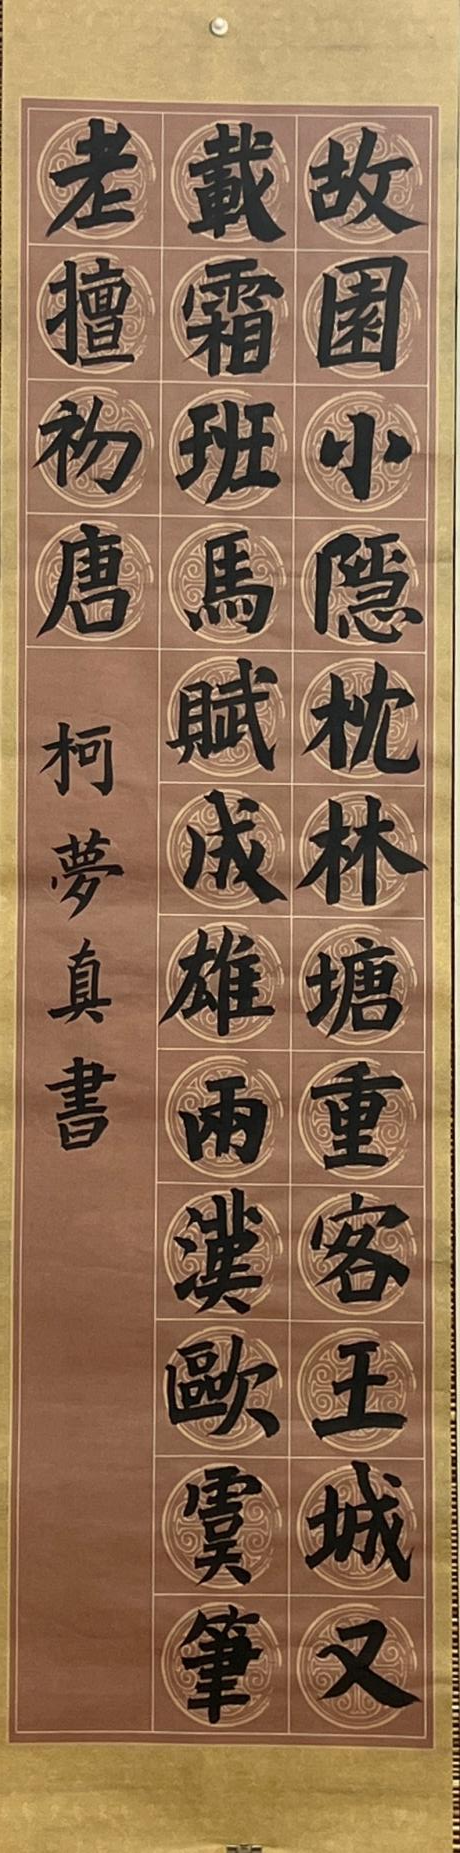 故園小隱枕林塘重客王城又
載霜班馬賦成雄兩漢歐虞筆
老擅初唐
柯夢真書